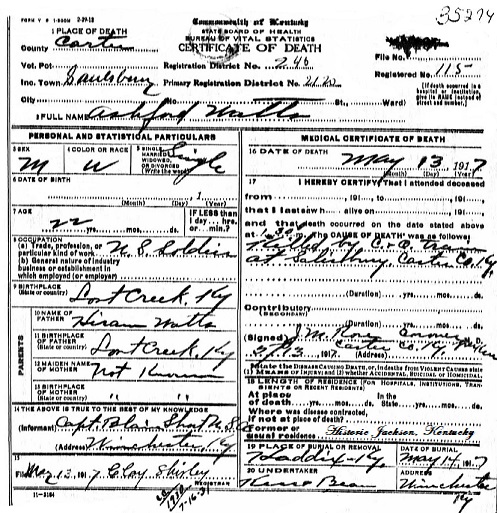 35274
FORM V. S. 1-500M 2-29-12
Commonwealth of Kentucky
1 PLACE OF DEATH
STATE BOARD OF HEALTH
BUREAU OF VITAL STATISTICS
CERTIFICATE OF DEATH
County Carter
File No.
Vot. Pct Registration District No. 240
Registered No. 115
Inc. Town Saulsbury Primary Registration District No.
(If death occurred in a hospital or institution, give its NAME instead of street and number.)
City (No. St., Ward)
2 FULL NAME Ashford Watts
PERSONAL AND STATISTICAL PARTICULARS
MEDICAL CERTIFICATE OF DEATH
3 SEX M
4 COLOR OR RACE W
5 SINGLE, MARRIED, WIDOWED, OR DIVORCED (Write the word) Single
16 DATE OF DEATH May 13 1917
(Month) (Day) (Year)
6 DATE OF BIRTH 1
(Month) (Day) (Year)
17 I HEREBY CERTIFY, That I attended deceased
from 191 to 191
that I last saw h alive on 191
7 AGE 22 yrs. mos. ds.
IF LESS than 1 day...hrs. or...min.?
and that death occurred on the date stated above
at m. The CAUSE OF DEATH* was as follows:
by C & O train
at Salesbury, Carter Co. Ky.
8 OCCUPATION
(a) Trade, profession, or particular kind of work U S Soldier
(b) General nature of industry business or establishment in which employed (or employer)
(Duration) yrs. mos. ds.
9 BIRTHPLACE (State or country) Lost Creek, Ky
Contributory (SECONDARY)
(Duration) yrs. mos. ds.
PARENTS
10 NAME OF FATHER Hiram Watts
(Signed) J. M. Rose Coroner
Carter Co. Ky.
1917 (Address)
11 BIRTHPLACE OF FATHER (State or country) Lost Creek, Ky
*State the DISEASE CAUSING DEATH, or, in deaths from VIOLENT CAUSES state (1) MEANS OF INJURY; and (2) whether ACCIDENTAL, SUICIDAL or HOMICIDAL.
12 MAIDEN NAME OF MOTHER Not Known
13 BIRTHPLACE OF MOTHER (State or country) " "
18 LENGTH OF RESIDENCE (FOR HOSPITALS, INSTITUTIONS, TRANSIENTS OR RECENT RESIDENTS)
At place of death yrs. mos. ds. State yrs. mos. ds.
Where was disease contracted, if not at place of death?
14 THE ABOVE IS TRUE TO THE BEST OF MY KNOWLEDGE
(Informant) Capt. Blair
(Address) Winchester, Ky
Former or usual residence Historic Jackson, Kentucky
19 PLACE OF BURIAL OR REMOVAL Haddix Ky.
DATE OF BURIAL May 14 1917
15 May 13 1917 Clay Shirley
REGISTRAR
20 UNDERTAKER
ADDRESS Winchester Ky
11-3184